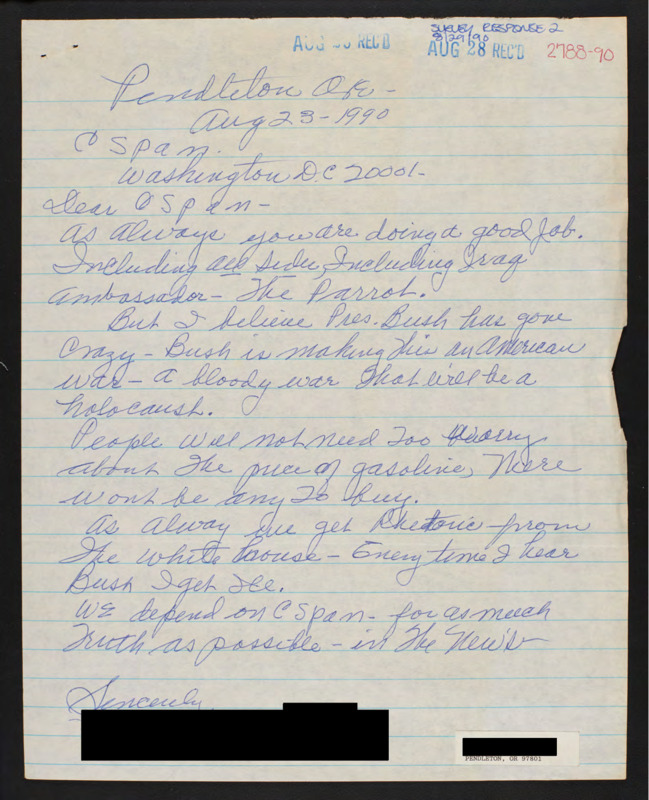 SURVEY RESPONSE 2
8/29/90
AUG 30 REC'D
AUG 28 REC'D
2788-90
Pendleton Ore -
Aug 23-1990
C Span.
Washington D.C 20001-
Dear C Span-
As always you are doing a good Job.
Including all sides, Including Iraq
Ambassador - The Parrot.
But I believe Pres. Bush has gone
Crazy - Bush is making this an American
war - a bloody war that will be a
holocaust.
People will not need Too Worry
about The price of gasoline, There
wont be any To buy.
As alway we get Rhetoric from
The White House - Every time I hear
Bush I get
We depend on C Span - for as much
Truth as possible - in The News -
Sincerely
PENDLETON, OR 97801